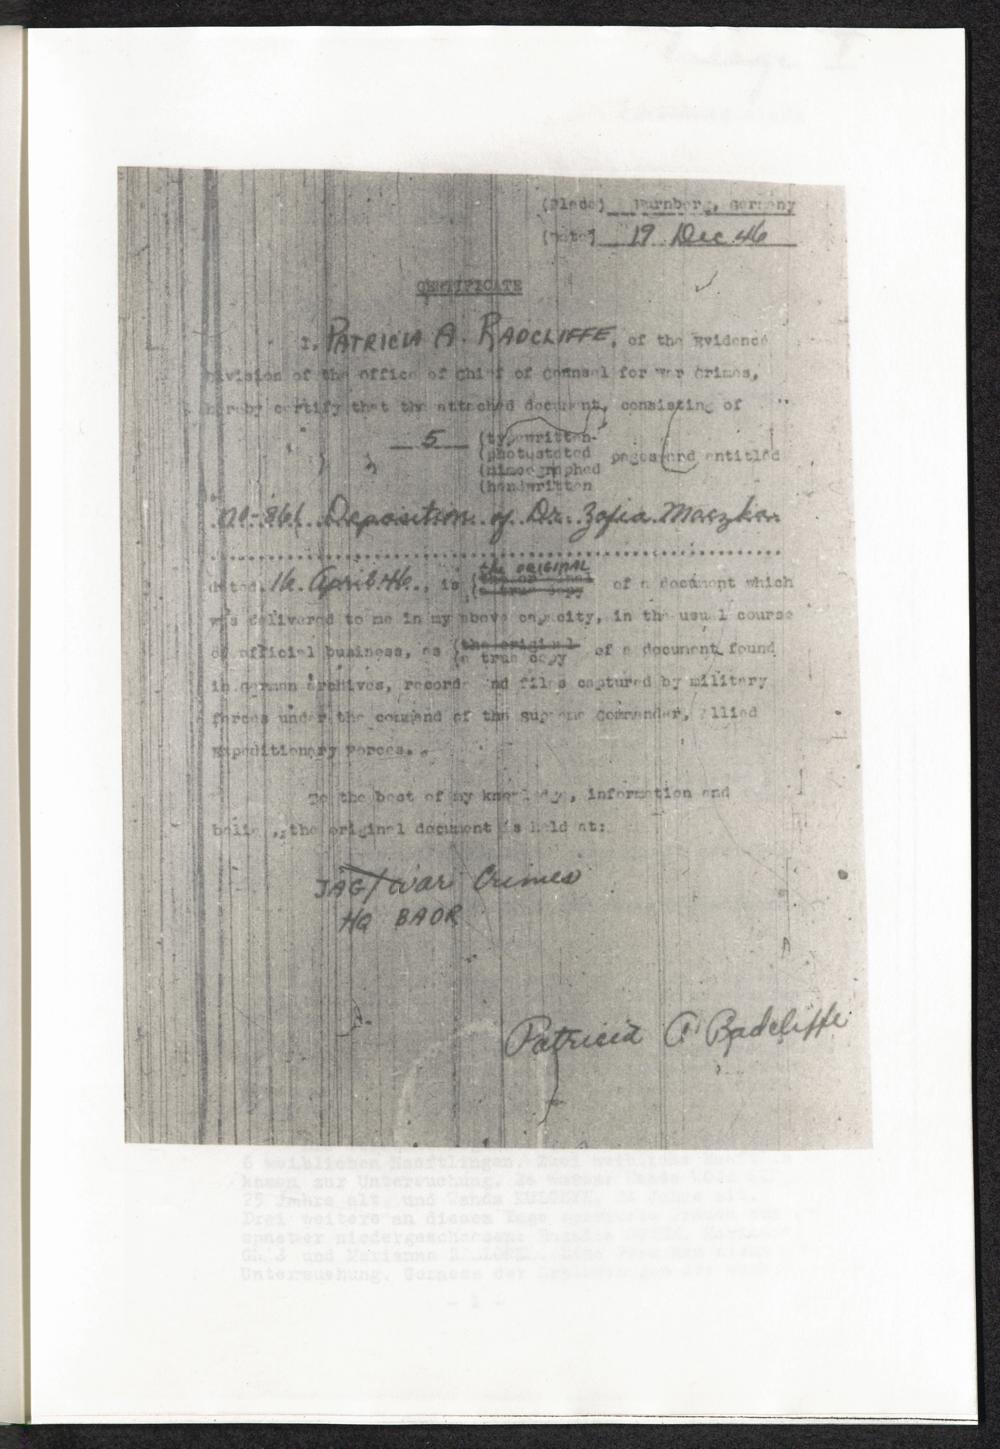 (Place) Nurnberg, Germany
(Date) 19 Dec 46
CERTIFICATE
I, PATRICIA A. RADCLIFFE, of the Evidence
Division of the Office of Chief of Counsel for War Crimes,
hereby certify that the attached document, consisting of
5 (typewritten
(photostated pages and entitled
(mimeographed
(handwritten
NO-861 Deposition of Dr. Zofia Maczka
the ORIGINAL
dated 16 April 46, is (the original of a document which
(a true copy
was delivered to me in my above capacity, in the usual course
of official business, as (the original of a document found
(a true copy
in German archives, records and files captured by military
forces under the command of the Supreme Commander, Allied
Expeditionary Forces.
To the best of my knowledge, information and
belief, the original document is held at:
JAG/War Crimes
HQ BAOR
Patricia A Radcliffe
6 weiblichen Haeftlingen. Zwei
kamen zur Untersuchung.
25 Jahre alt, und Wanda
Drei weitere an diesem Tage
spaeter niedergeschossen:
und Marianna
Untersuchung.
- 1 -